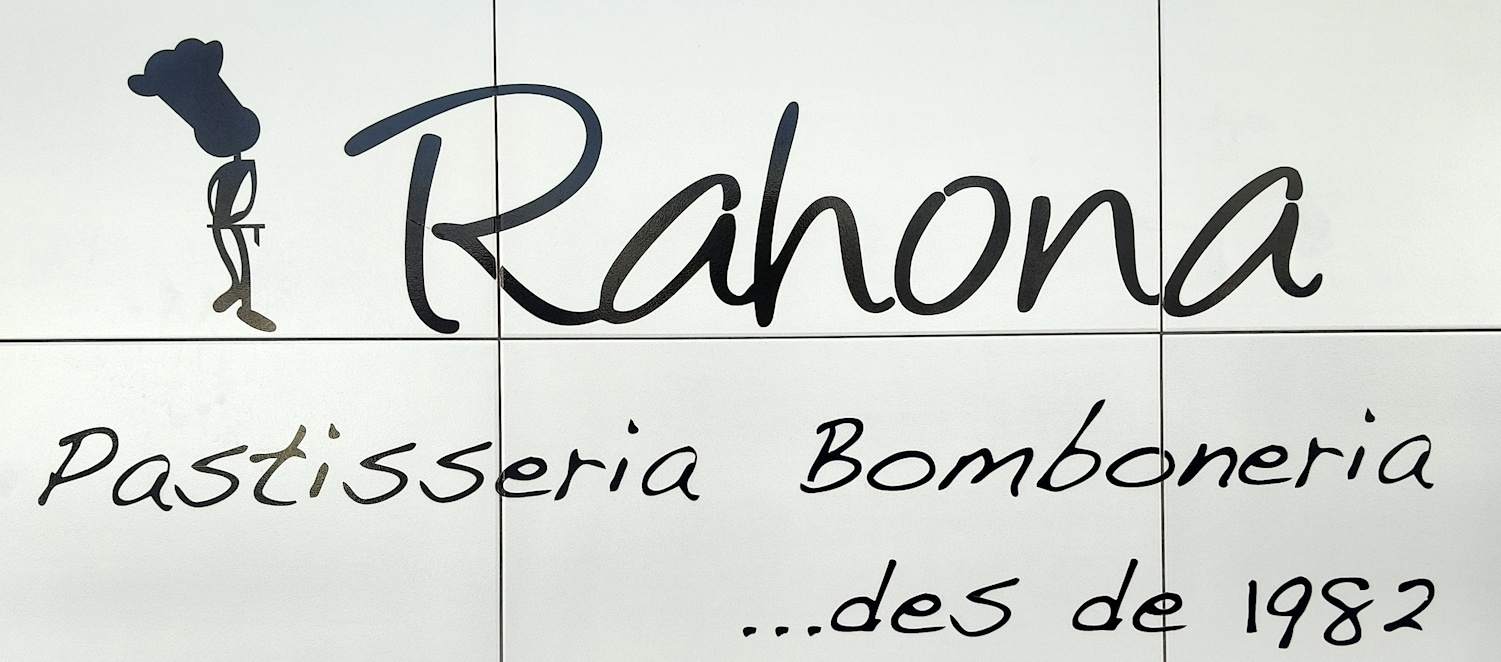 Rahona
Pastisseria Bomboneria
...des de 1982